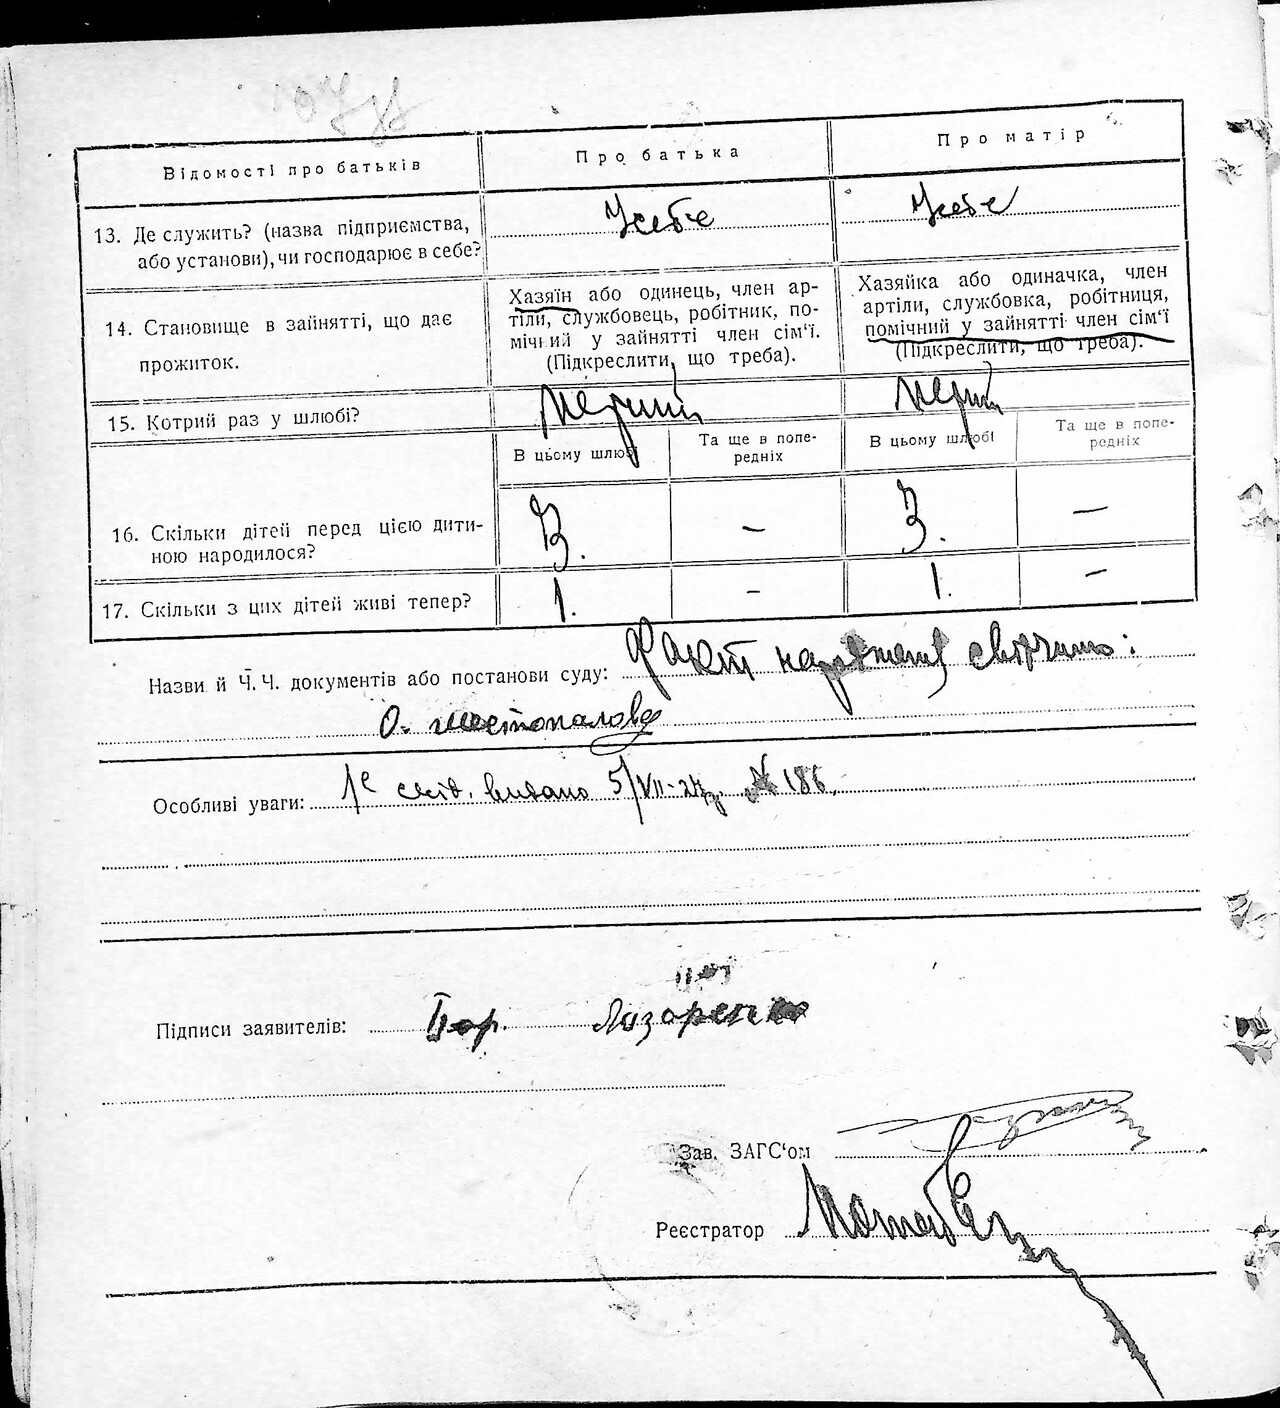 Відомості про батьків
Про батька
Про матір
13. Де служить? (назва підприємства,
або установи), чи господарює в себе?
У себе
У себе
14. Становище в зайнятті, що дає
прожиток.
Хазяїн або одинець, член ар-
тіли, службовець, робітник, по-
мічний у зайнятті член сім'ї.
(Підкреслити, що треба).
Хазяйка або одиначка, член
артіли, службовка, робітниця,
помічний у зайнятті член сім'ї
(Підкреслити, що треба).
15. Котрий раз у шлюбі?
перший
перший
В цьому шлюбі
Та ще в попе-
редніх
В цьому шлюбі
Та ще в попе-
редніх
16. Скільки дітей перед цією дити-
ною народилося?
3. – 3. –
17. Скільки з цих дітей живі тепер?
1. – 1. –
Назви й Ч.Ч. документів або постанови суду: Факт народження свідчить:
О. Шестопалова
Особливі уваги: свід. видано 5/VII-27р. № 186.
Підписи заявителів: Лазаренко
Зав. ЗАГС'ом
Реєстратор